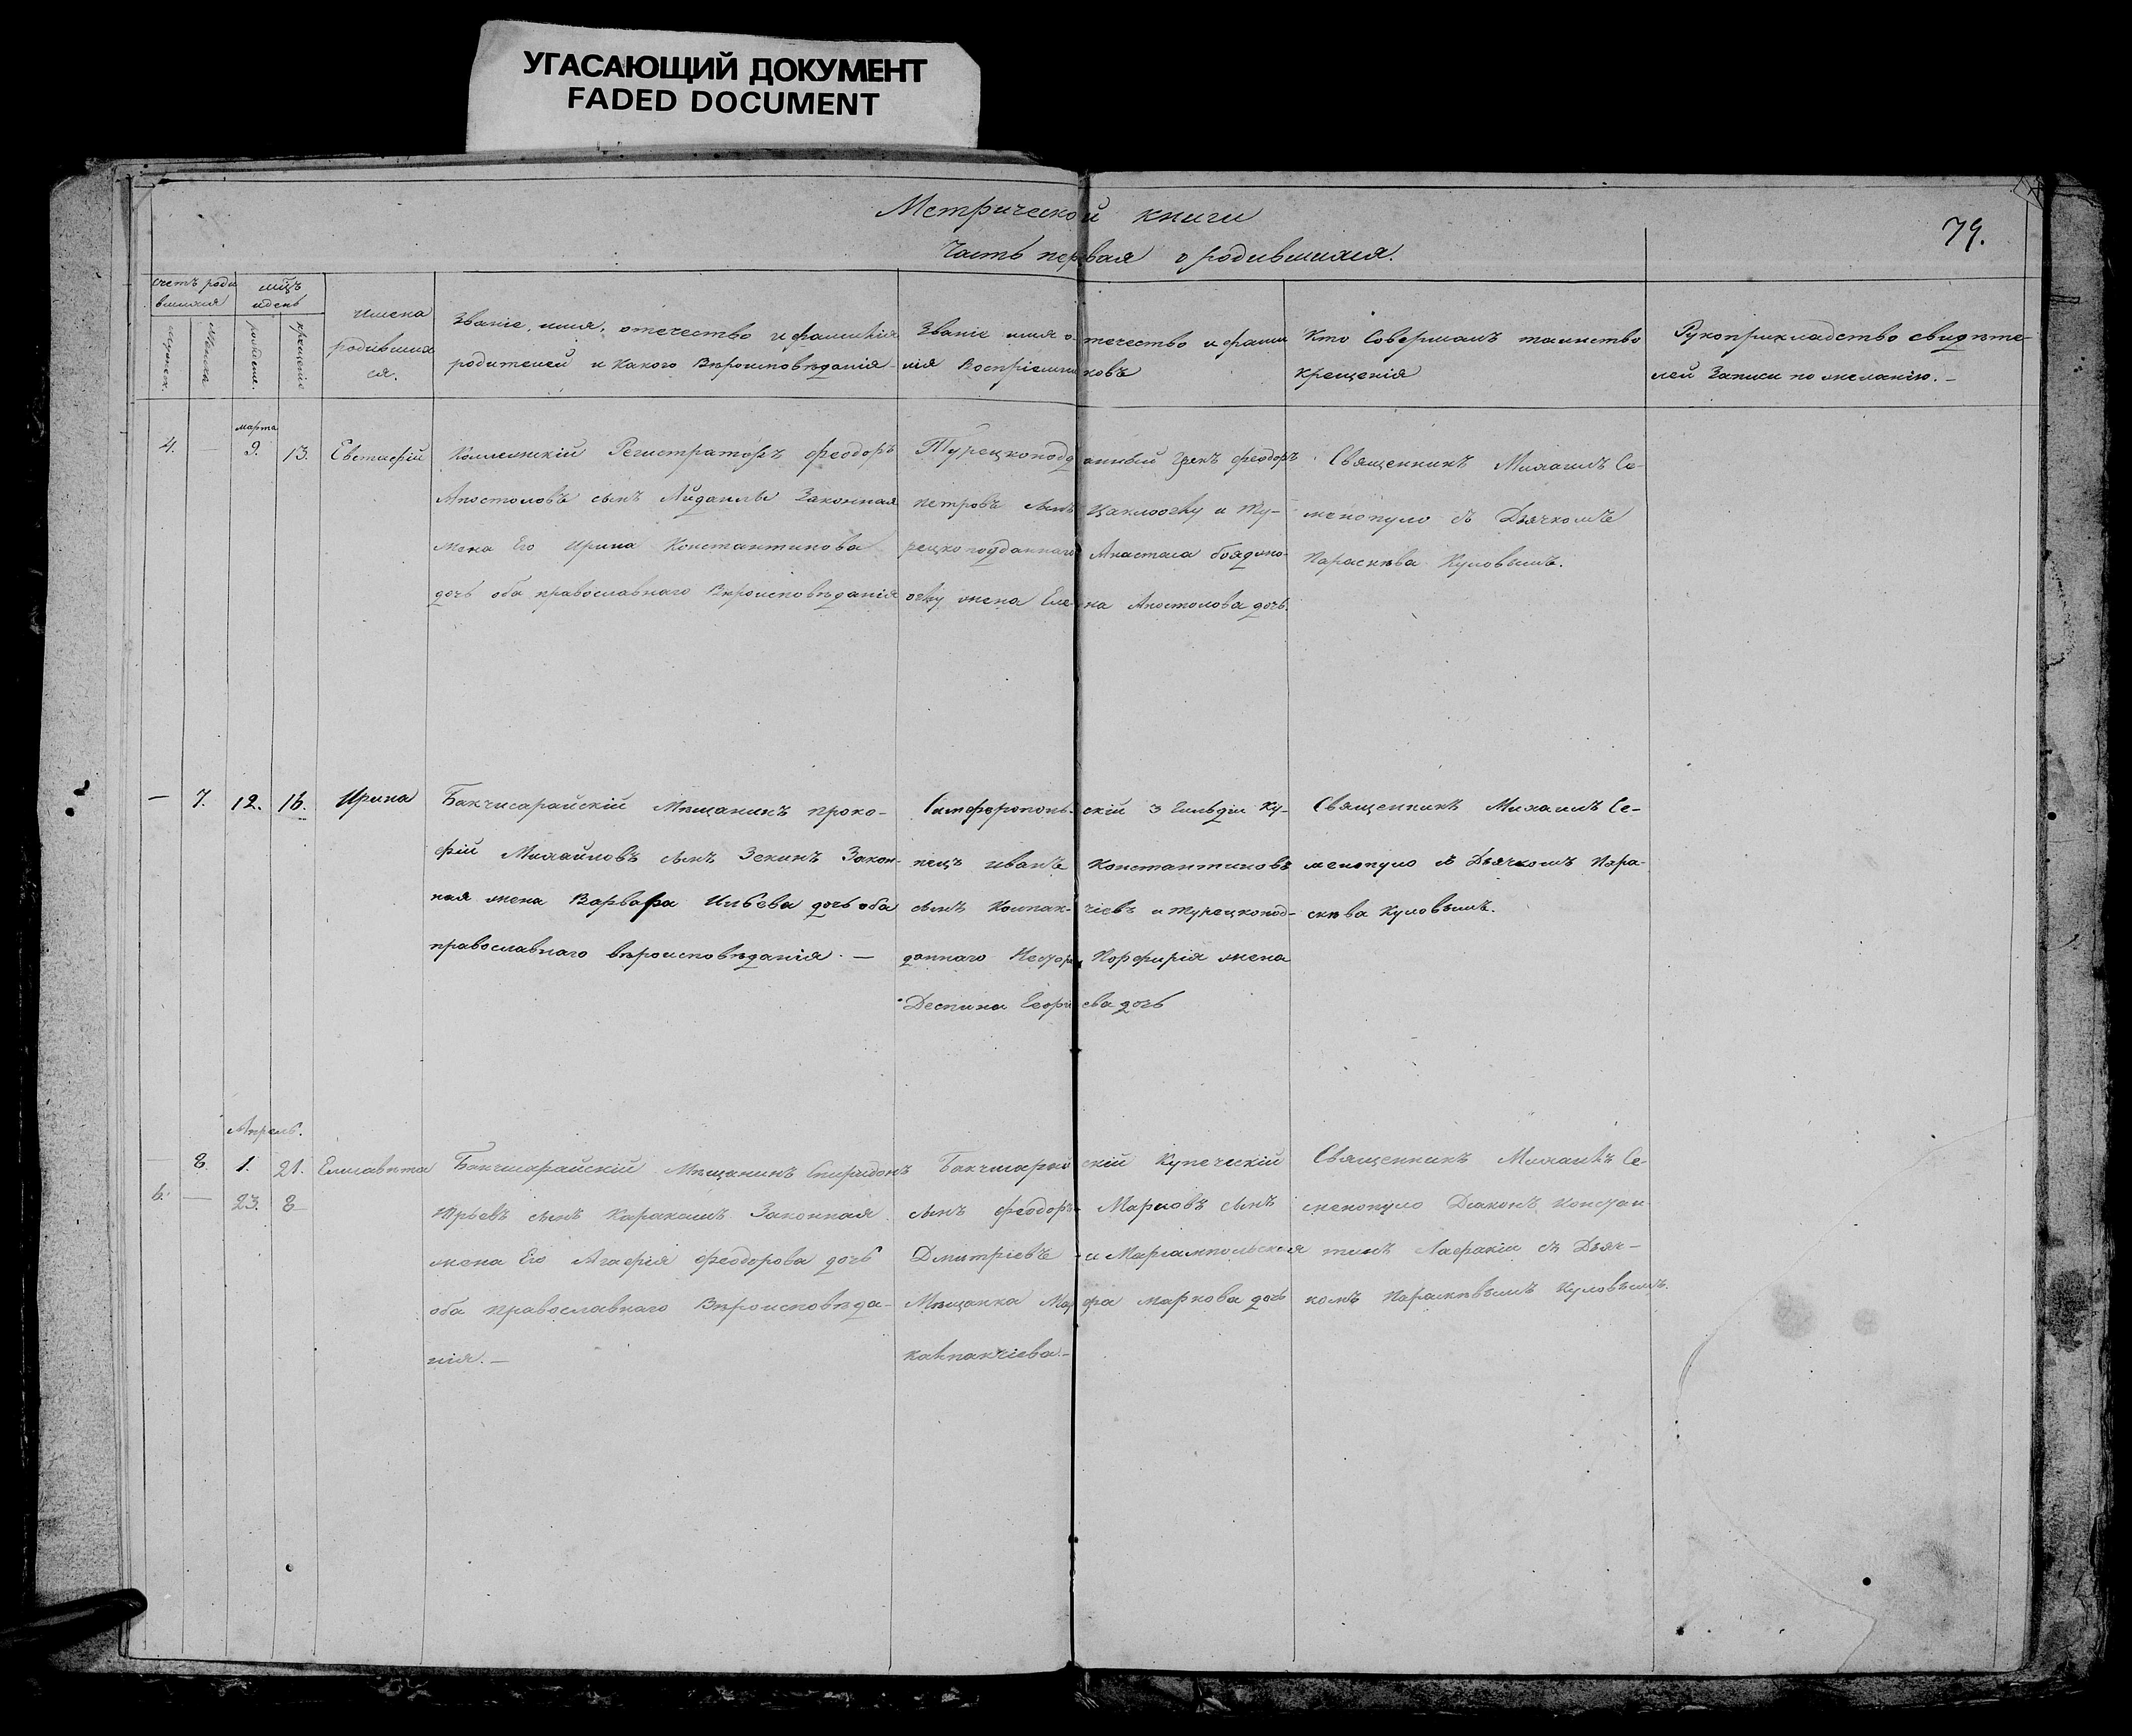 УГАСАЮЩИЙ ДОКУМЕНТ
FADED DOCUMENT
Метрической книги
79.
Часть первая о родившихся.
счетъ роди
вшихся
мѣцъ
и день
мужеск.
женска.
рожден.
крещенія
имена
родивших
ся.
Званіе, имя, отечество и фамилія
родителей и какого вѣроисповѣданія
Званіе имя отечество и фами
лія воспріемниковъ
Кто совершалъ таинство
крещенія
Рукоприкладство свидѣте-
лей записи по желанію.
марта
4. — 9. 13. Евстафій
Коллежскій Регистраторъ Феодоръ
Апостоловъ сынъ законная
жена его Ирина Константинова
дочь оба православнаго вѣроисповѣданія
Турецкоподданный Грекъ Феодоръ
Петровъ сынъ и Ту-
рецкоподданнаго Анастаса
жена Елена Апостолова дочь.
Священникъ Михаилъ Се-
менопуло съ Дьячкомъ
Параскѣва Куловымъ.
— 7. 12. 16. Ирина
Бахчисарайскій Мѣщанинъ Проко-
фій Михайловъ сынъ Зекинъ Закон-
ная жена Варвара Ильева дочь оба
православнаго вѣроисповѣданія. —
Симферопольскій 3 гильдіи ку-
пецъ Иванъ Константиновъ
сынъ Колпакчіевъ и турецкопод-
даннаго Нестора Порфирія жена
Деспина Георгіева дочь
Священникъ Михаилъ Се-
менопуло съ Дьячкомъ Пара-
скѣва Куловымъ.
Апрель.
— 8. 1. 21. Елисавета
6. — 23. 8
Бахчисарайскій Мѣщанинъ Спиридонъ
Юрьевъ сынъ Каракашъ Законная
жена его Агафія Феодорова дочь
оба православнаго вѣроисповѣда-
нія. —
Бахчисарайскій Купеческій
сынъ Феодоръ Марковъ сынъ
Дмитріевъ и Маріампольская
Мѣщанка Марфа Маркова дочь
Калпакчіева.
Священникъ Михаилъ Се-
менопуло Діаконъ Констан
тинъ съ Дьяч-
комъ Параскѣвымъ Куловымъ.